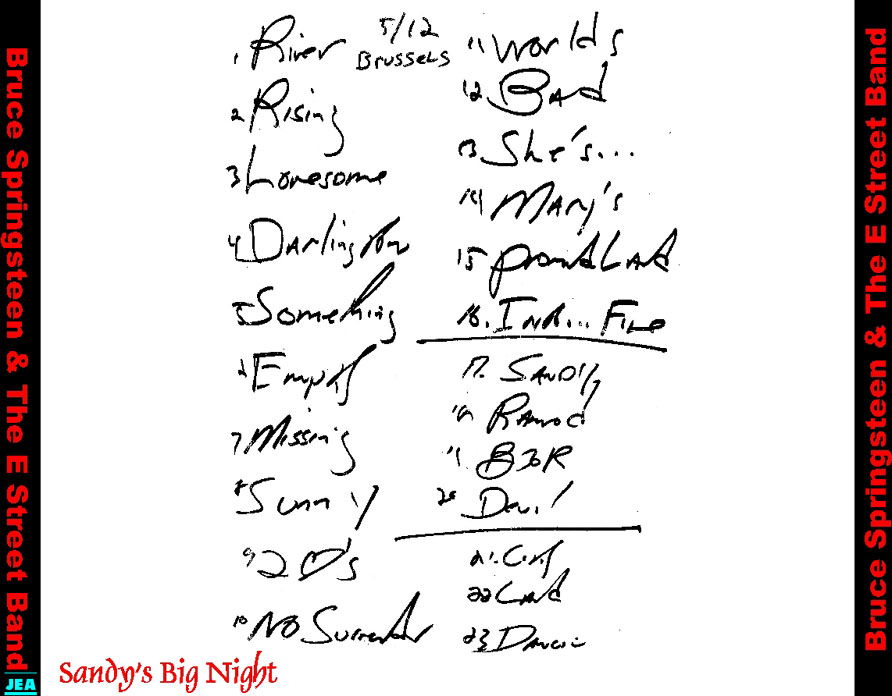 Bruce Springsteen & The E Street Band
5/12
Brussels
1 River
2 Rising
3 Lonesome
4 Darlington
5 Something
Empty
7 Missing
8 Sunny
9 2 ♡'s
10 No Surrender
11 Worlds
12 Bad
13 She's...
14 Mary's
15 promisLand
16. In A... Fire
17. Sandy
18 Ramrod
19 B2R
20 Devil
21. City
22 Land
23 Dancin
Sandy's Big Night
JEA
Bruce Springsteen & The E Street Band